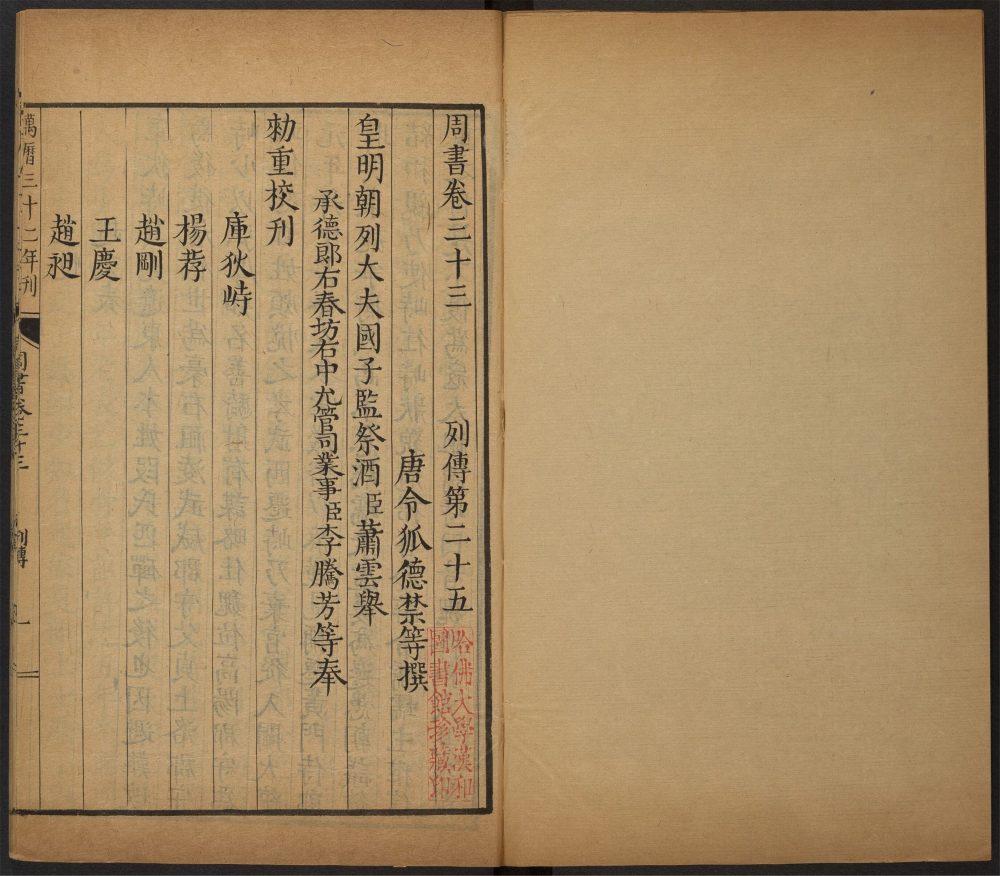 周書卷三十三　列傳第二十五
唐令狐德棻等撰
皇明朝列大夫國子監祭酒臣蕭雲舉
承德郎右春坊右中允管司業事臣李騰芳等奉
勑重校刊
庫狄峙
楊荐
趙剛
王慶
趙昶
萬曆三十二年刊
周書卷三十三
列傳
一
哈佛大學漢和
圖書館珍藏印